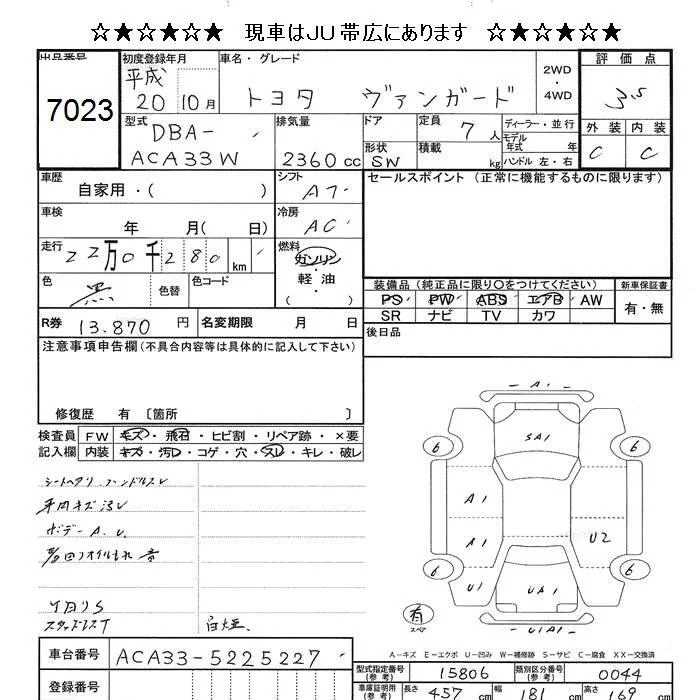 ☆★☆★☆★ 現車はJU帯広にあります ☆★☆★☆★
出品番号 初度登録年月 車名・グレード 2WD ・ 4WD 評価点
7023 平成 20 10月 トヨタ ヴァンガード 3.5
型式 DBA- ACA33W 排気量 2360cc ドア 定員 7人 ディーラー・並行 外装 内装
形状 SW 積載 kg モデル年式 年 ハンドル 左・右 C C
車歴 自家用・( ) シフト AT セールスポイント (正常に機能するものに限ります)
車検 年 月( 日) 冷房 AC
走行 22万0千280km 燃料 ガソリン・軽・油 ( )
色 黒 色替 色コード
装備品 (純正品に限り○をつけてください) 新車保証書
PS PW ABS エアB AW 有・無
SR ナビ TV カワ
R券 13.870円 名変期限 月 日 後日品
注意事項申告欄(不具合内容等は具体的に記入して下さい)
修復歴 有 〔箇所 〕
検査員 FW キズ・飛石・ヒビ割・リペア跡・×要
記入欄 内装 キズ・汚レ・コゲ・穴・スレ・キレ・破レ
ボデーA.U.
スタッドレスT 白煙
A1
SA1
6 6
A1
A1 U2
6 6
U1 UA1
有 スペア
U1A1
A-キズ E-エクボ U-凹み W-補修跡 S-サビ C-腐食 XX-交換済
車台番号 ACA33-5225227
登録番号
型式指定番号(参考) 15806 類別区分番号(参考) 0044
車庫証明用(参考) 長さ 457cm 幅 181cm 高さ 169cm